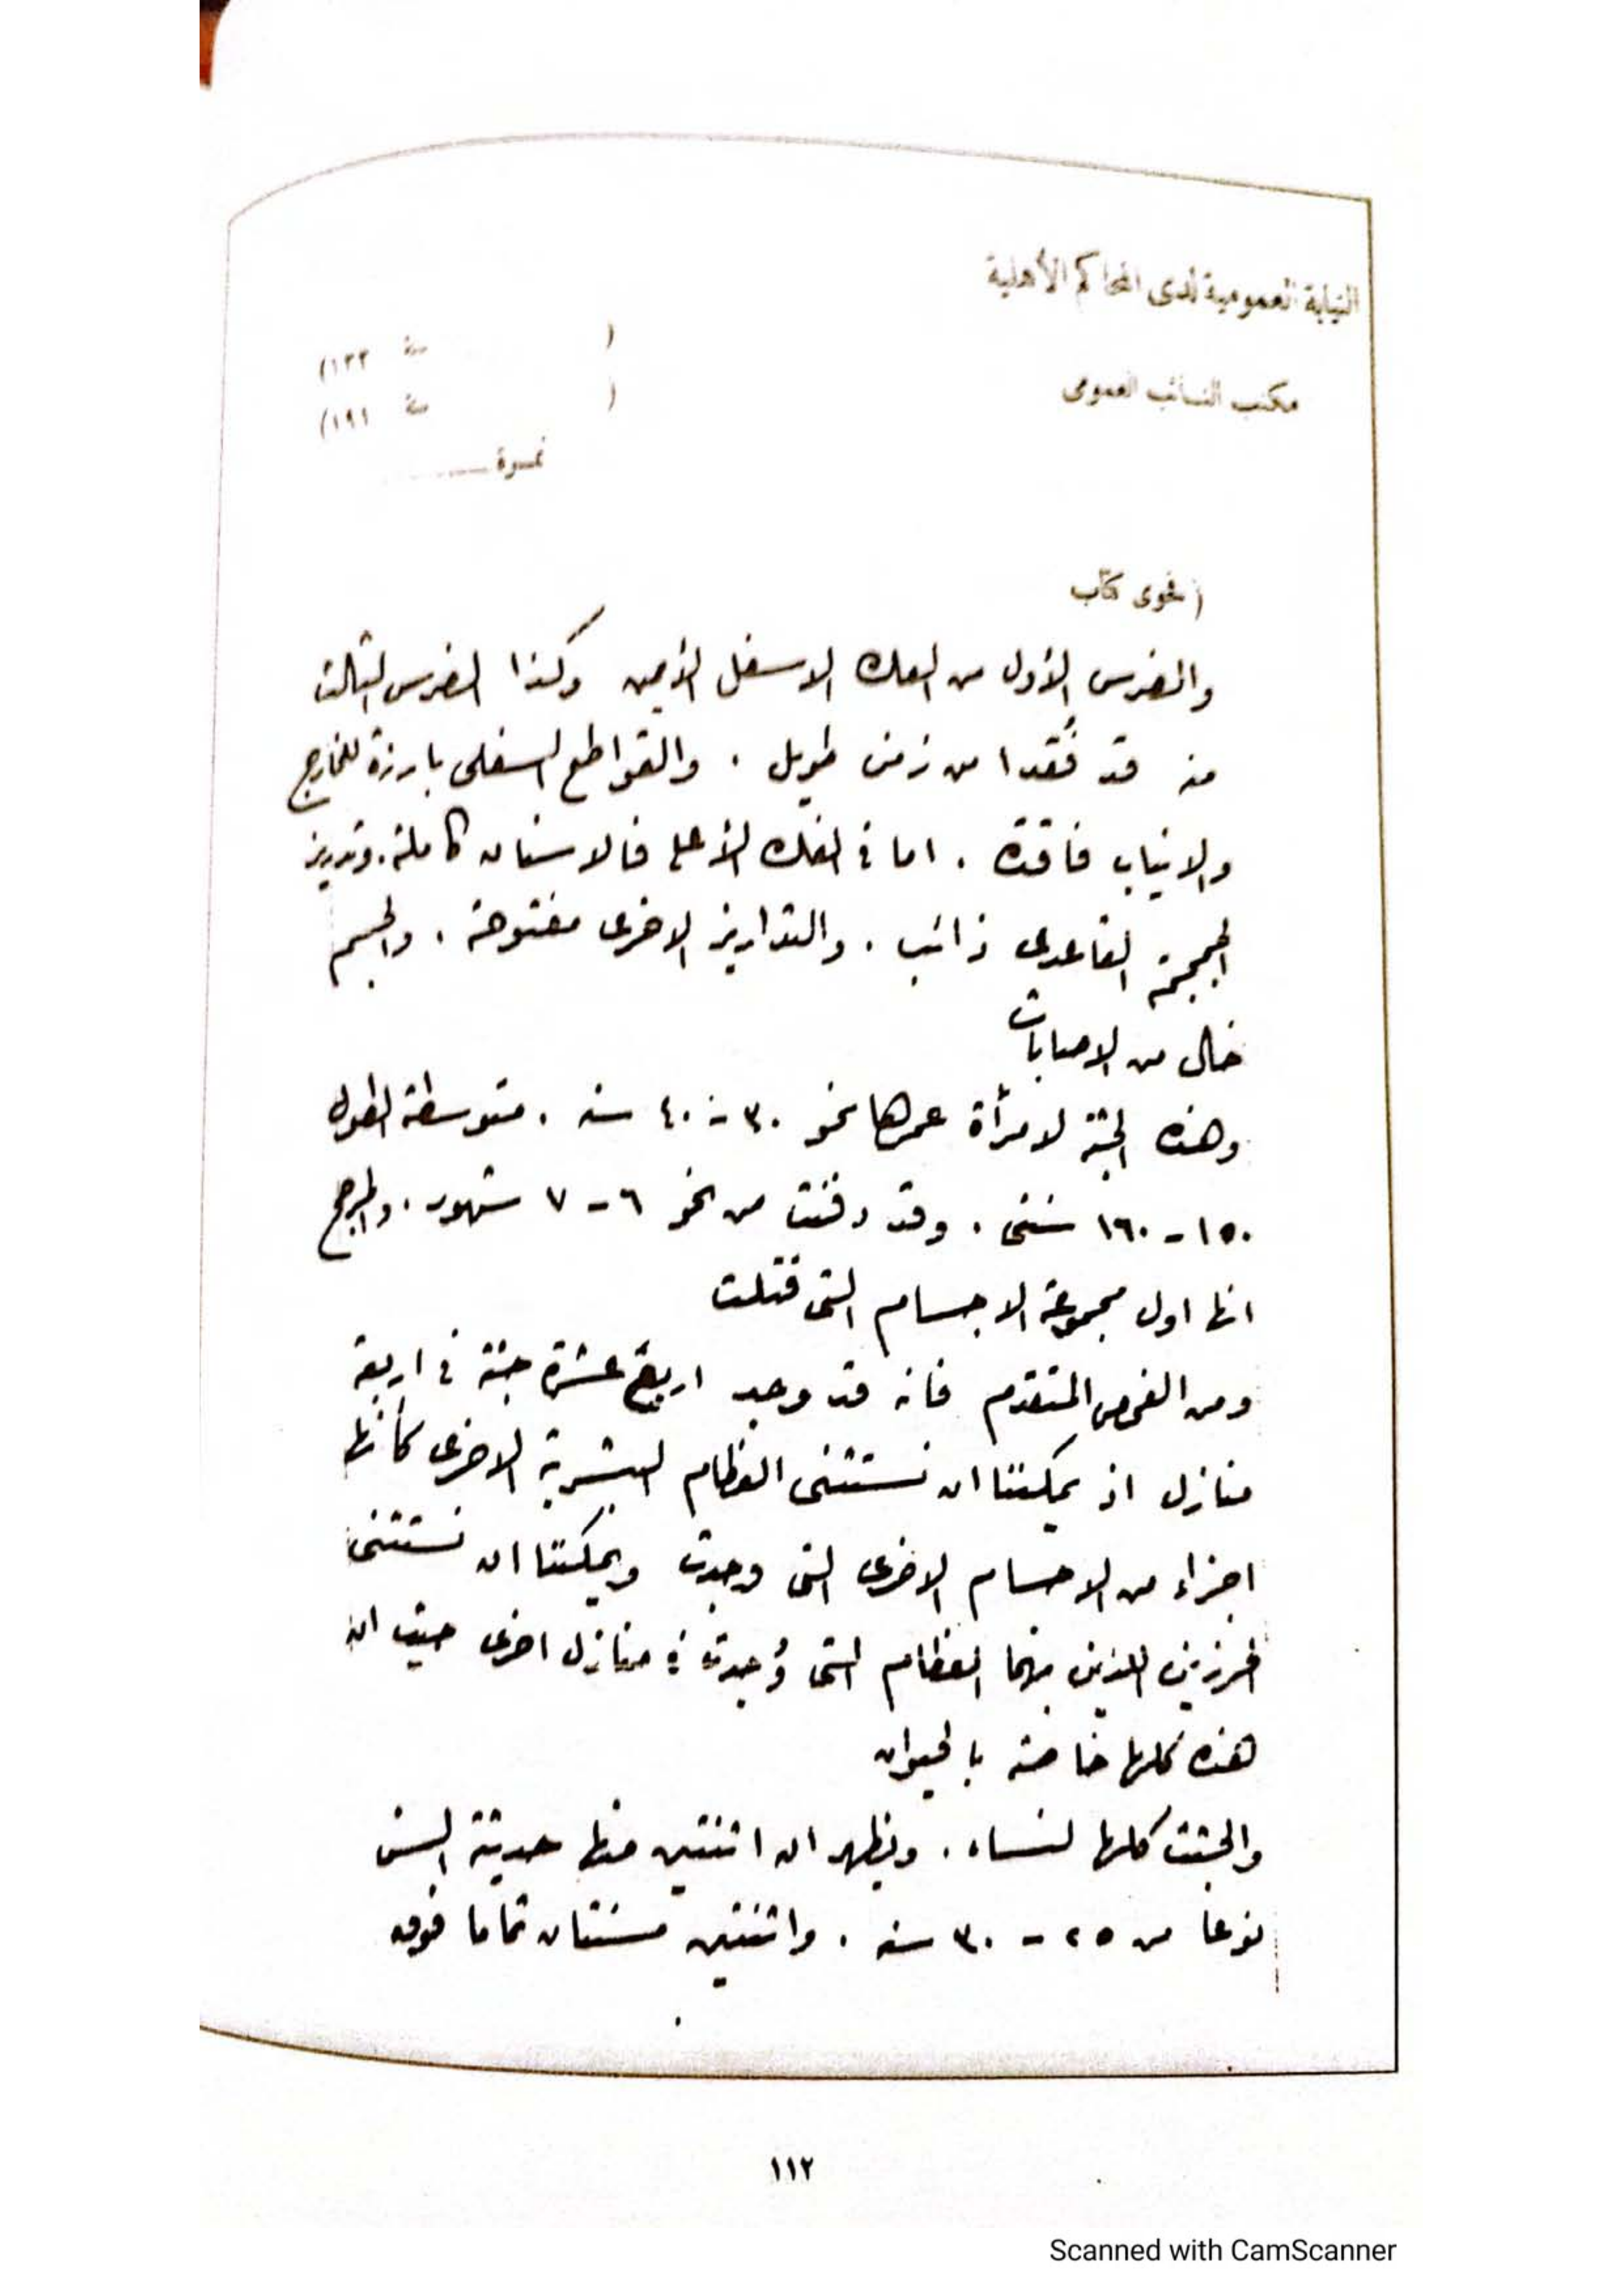 النيابة العمومية لدى المحاكم الأهلية
( سنة ١٣٣)
مكتب النائب العمومى
( سنة ١٩١)
نمرة
( فحوى كتاب
والضرس الأول من الفك الاسفل الأيمن وكذا الضرس الثالث
منه قد فُقدا من زمن طويل . والقواطع السفلى بارزة للخارج
والانياب فاقدة . اما فى الفك الأعلى فالاسنان كاملة . وتدريز
الجمجمة القاعدى ذائب . والتداريز الاخرى مفتوحة . والجسم
خال من الاصابات
وهذه الجثة لامرأة عمرها نحو ٣٠ - ٤٠ سنه . متوسطة الطول
١٥٠ - ١٦٠ سنتى . وقد دفنت من نحو ٦ - ٧ شهور . والمرجح
انها اول مجموعة الاجسام التى قتلت
ومن الفحص المتقدم فانه قد وجد اربع عشرة جثة فى اربعة
منازل اذ يمكننا ان نستثنى العظام البشرية الاخرى كأنها
اجزاء من الاجسام الاخرى التى وجدت ويمكننا ان نستثنى
الحرزين اللذين بهما العظام التى وُجدت فى منازل اخرى حيث ان
هذه كلها خاصة بالحيوان
والجثث كلها لنساء . ويظهر ان اثنتين منها حديثة السن
نوعا من ٢٥ - ٣٠ سنه . واثنتين مسنتان تماما فوق
١١٢
Scanned with CamScanner